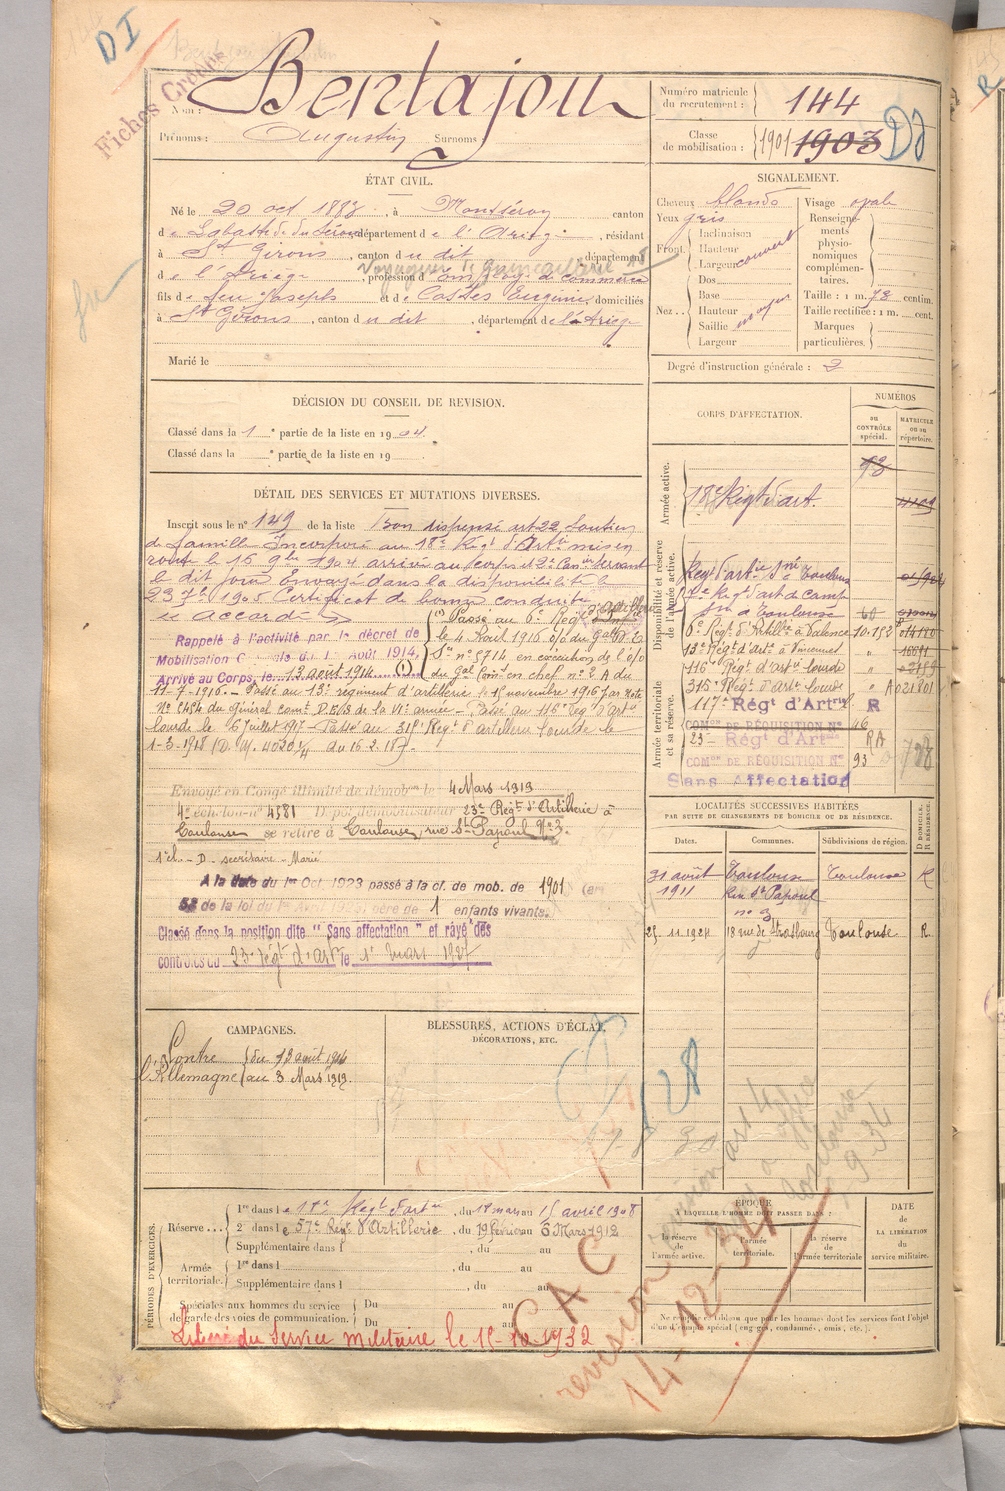 DI
Fiches Croisées
Nom : Bentajou
Prénoms : Augustin Surnoms :
Numéro matricule du recrutement : 144
Classe de mobilisation : 1901 1903
ÉTAT CIVIL.
Né le 20 oct 1883, à Montséron canton
de Labastide du Sérou département de l'Ariège, résidant
à St Girons, canton du dit, département
Voyageur de Quincaillerie
de l'Ariège, profession d'employé de commerce
fils de feu Joseph et de Castes Eugénie domiciliés
à St Girons, canton du dit, département de l'Ariège
Marié le
SIGNALEMENT.
Cheveux blonds
Yeux gris
Front Inclinaison
Hauteur
Largeur couvert
Nez Dos
Base
Hauteur
Saillie moyen
Largeur
Visage ovale
Renseignements physionomiques complémentaires.
Taille : 1 m. 78 centim.
Taille rectifiée : 1 m. cent.
Marques particulières.
Degré d'instruction générale : 3
DÉCISION DU CONSEIL DE REVISION.
Classé dans la 1e partie de la liste en 1904.
Classé dans la e partie de la liste en 19
DÉTAIL DES SERVICES ET MUTATIONS DIVERSES.
Inscrit sous le n° 149 de la liste Bon dispensé art 22 Soutien
de famille Incorporé au 18e Régt d'Artie mis en
route le 15 9bre 1904 arrivé au corps et 2e Can servant
le dit jour Envoyé dans la disponibilité le
23 7bre 1905 Certificat de bonne conduite
accordé
Rappelé à l'activité par le décret de
Mobilisation Générale du 1er Août 1914,
Arrivé au Corps, le 13 août 1914 (1)
(1) Passé au 6e Régt d'Artillerie
le 4 Août 1916 o/o du Gal D.E.
Sce n° 5714 en exécution de l'o/o
du Gal Comt en chef n° 2 A du
11-7-1916. – Passé au 13e régiment d'artillerie le 15 novembre 1916 par Note
N° 2454 du Général comt D.E.S de la VIe armée – Passé au 116e Rég d'artie
lourde le 6 juillet 1917 – Passé au 315e Régt d'artillerie lourde le
1-3-1918 (D. M. 4020 3/4 du 16-2-18).
Envoyé en Congé illimité de démobon le 4 Mars 1919
4e échelon n° 4581 Dépôt démobilisateur 23e Régt d'Artillerie à
Toulouse se retire à Toulouse, rue St Papoul N° 3.
1e cl. – D – secrétaire – Marié
A la date du 1er Oct 1923 passé à la cl. de mob. de 1901 (art
58 de la loi du 1er Avril 1923 père de 1 enfants vivants.
Classé dans la position dite "Sans affectation" et rayé des
contrôles du 23e régt d'art le 1er mars 1927
CORPS D'AFFECTATION.
NUMÉROS
au CONTRÔLE spécial.
MATRICULE ou au répertoire.
Armée active.
18e Régt d'art.
Disponibilité et réserve de l'armée active.
Régt d'artie Toulouse
2e Régt d'art de camp
à Toulouse 60
6e Régt d'Artillie à Valence 10.152
13e Régt d'Artie à Vincennes " 16691
116e Régt d'artie lourde "
315e Régt d'Artie lourde " A021801
Armée territoriale et sa réserve.
117e Régt d'Artrie R
COMon DE RÉQUISITION N° 46
23e Régt d'Artrie RA
COMon DE RÉQUISITION N° 93
Sans Affectation
LOCALITÉS SUCCESSIVES HABITÉES
PAR SUITE DE CHANGEMENTS DE DOMICILE OU DE RÉSIDENCE.
Dates. Communes. Subdivisions de région. D DOMICILE. R RÉSIDENCE.
31 août 1911 Toulouse Rue St Papoul n° 3 Toulouse R
25.11.1924 18 rue de Strasbourg Toulouse R
CAMPAGNES.
Contre l'Allemagne du 13 août 1914
au 3 Mars 1919.
BLESSURES, ACTIONS D'ÉCLAT,
DÉCORATIONS, ETC.
PÉRIODES D'EXERCICES.
Réserve 1re dans le 18e Régt d'artie, du 18 mars au 15 avril 1908
2e dans le 57e Régt d'Artillerie, du 19 Février au 6 Mars 1912
Supplémentaire dans l , du au
Armée territoriale. 1re dans l , du au
Supplémentaire dans l , du au
Spéciales aux hommes du service de garde des voies de communication. Du au
Du au
Libéré du Service militaire le 15-10-1932
ÉPOQUE
À LAQUELLE L'HOMME DOIT PASSER DANS :
la réserve de l'armée active.
l'armée territoriale.
la réserve de l'armée territoriale
DATE de LA LIBÉRATION du service militaire.
CAC
revision
14-12-34